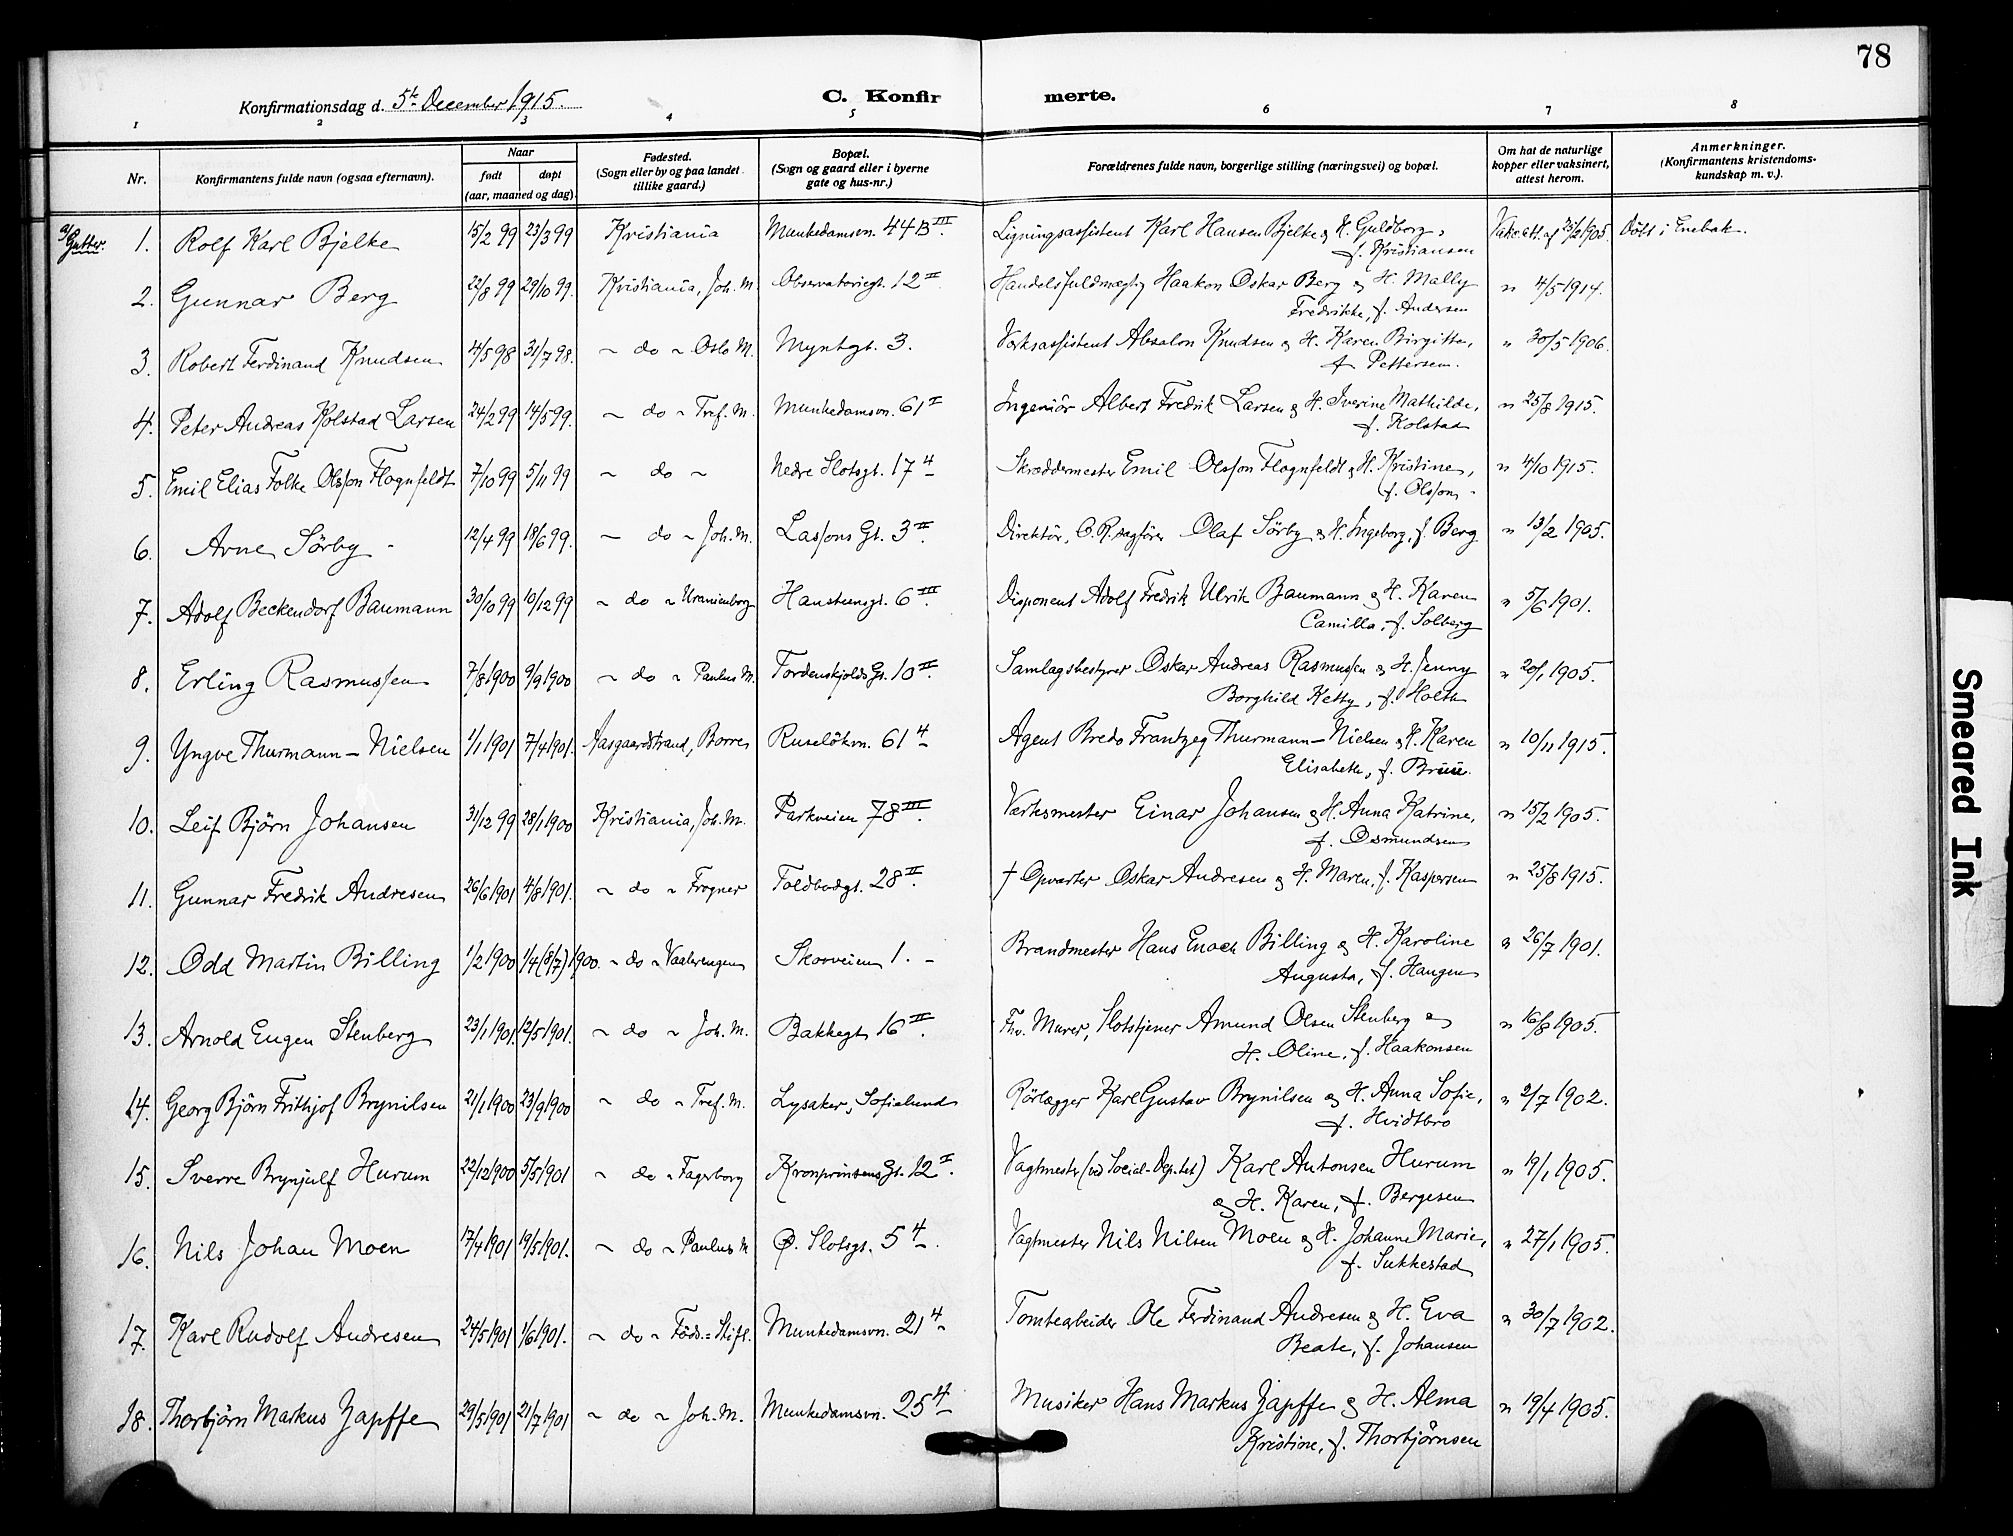 78
Konfirmationsdag d. 5te December 1915.
C. Konfir merte.
1 2 3 4 5 6 7 8
Nr.
Konfirmantens fulde navn (ogsaa efternavn).
Naar
født døpt
(aar, maaned og dag)
Fødested.
(Sogn eller by og paa landet
tillike gaard.)
Bopæl.
(Sogn og gaard eller i byerne
gate og hus-nr.)
Forældrenes fulde navn, borgerlige stilling (næringsvei) og bopæl.
Om hat de naturlige
kopper eller vaksinert,
attest herom.
Anmerkninger.
(Konfirmantens kristendoms-
kundskap m. v.).
a/ Gutter. 1. Rolf Karl Bjelke 15/2 99 23/3 99 Kristiania Munkedamsvn. 44B III Ligningsassistent Karl Hansen Bjelke & H. Guldborg, Vakc. att. af 23/2 1905. Döbt i Enebak.
f. Kristiansen
2. Gunnar Berg 22/8 99 29/10 99. Kristiania, Joh. M. Observatoriegt. 12 II Handelsfuldmægtig Haakon Oskar Berg & H. Mally " 4/5 1914.
Fredrikke, f. Andersen
3. Robert Ferdinand Knudsen 4/5 98 31/7 98. " do " Oslo M. Myntgt. 3. Værksassistent Absalon Knudsen & H. Karen Birgitte, " 30/5 1906.
f. Pettersen.
4. Peter Andreas Kolstad Larsen 24/2 99 14/5 99. " do " Tref. M. Munkedamsvn. 61 I Ingeniör Albert Fredrik Larsen & H. Iverine Mathilde, " 25/8 1915.
f. Kolstad
5. Emil Elias Folke Olsson Flognfeldt 7/10 99 5/11 99 " do " Nedre Slotsgt. 17 4 Skræddermester Emil Olsson Flognfeldt & H. Kristine, " 4/10 1915.
f. Olsson.
6. Arne Sörby 12/4 99 18/6 99. " do " Joh. M. Lassons Gt. 3 II. Direktör, O.R.sagförer Olaf Sörby & H. Ingeborg, f. Berg " 13/2 1905.
7. Adolf Beckendorf Baumann 30/10 99 10/12 99 " do " Uranienborg Hansteensgt. 6 III. Disponent Adolf Fredrik Ulrik Baumann & H. Karen " 5/6 1901.
Camilla, f. Solberg
8. Erling Rasmussen 7/8 1900 9/9 1900 " do " Paulus M. Tordenskjolds Gt. 10 II. Samlagsbestyrer Oskar Andreas Rasmussen & H. Jenny " 20/1 1905.
Borghild Ketty, f. Holth
9. Yngve Thurmann-Nielsen 1/1 1901 7/4 1901. Aasgaardstrand, Borre Ruselökvn. 61 4 Agent Bredo Frantzeg Thurmann-Nielsen & H. Karen " 10/11 1915.
Elisabeth, f. Bruu.
10. Leif Björn Johansen 31/12 99 28/1 1900 Kristiania, Joh. M. Parkveien 78 III. Værksmester Einar Johansen & H. Anna Katrine, " 15/2 1905.
f. Osmundsen
11. Gunnar Fredrik Andresen 26/6 1901 4/8 1901. " do " Frogner Toldbodgt. 28 II. † Opvarter Oskar Andresen & H. Maren, f. Kaspersen " 25/8 1915.
12. Odd Martin Billing 1/2 1900 1/4 (8/7) 1900. " do " Vaalerengen Skovveien 1. Brandmester Hans Enoch Billing & H. Karoline " 26/7 1901.
Augusta, f. Haugen
13. Arnold Eugen Stenberg 23/1 1901. 12/5 1901. " do " Joh. M. Bakkegt. 16 II. Fhv. Murer, Slotstjener Amund Olsen Stenberg & " 16/8 1905.
H. Oline, f. Haakonsen
14. Georg Björn Frithjof Brynilsen 21/1 1900 23/9 1900 " do " Tref. M. Lysaker, Sofielund Rörlægger Karl Gustav Brynilsen & H. Anna Sofie, " 2/7 1902.
f. Hvidtbro
15. Sverre Brynjulf Hurum 22/12 1900 5/5 1901 " do " Fagerborg Kronprinsens Gt. 12 I. Vagtmester (ved Social-Dep.tet) Karl Antonsen Hurum " 19/1 1905.
& H. Karen, f. Bergesen
16. Nils Johan Moen 17/4 1901 19/5 1901. " do " Paulus M. Ø. Slotsgt. 5 4. Vagtmester Nils Nilsen Moen & H. Johanne Marie, " 27/1 1905.
f. Sukkestad
17. Karl Rudolf Andresen 24/5 1901 1/6 1901. " do " Föds.=Stift. Munkedamsvn. 21 4 Tomtearbeider Ole Ferdinand Andresen & H. Eva " 30/7 1902.
Beate, f. Johansen
18. Thorbjörn Markus Zapffe 29/5 1901 21/7 1901 " do " Joh. M. Munkedamsvn. 25 4 Musiker Hans Markus Zapffe & H. Alma " 19/4 1905.
Kristine, f. Thorbjörnsen
Smeared Ink